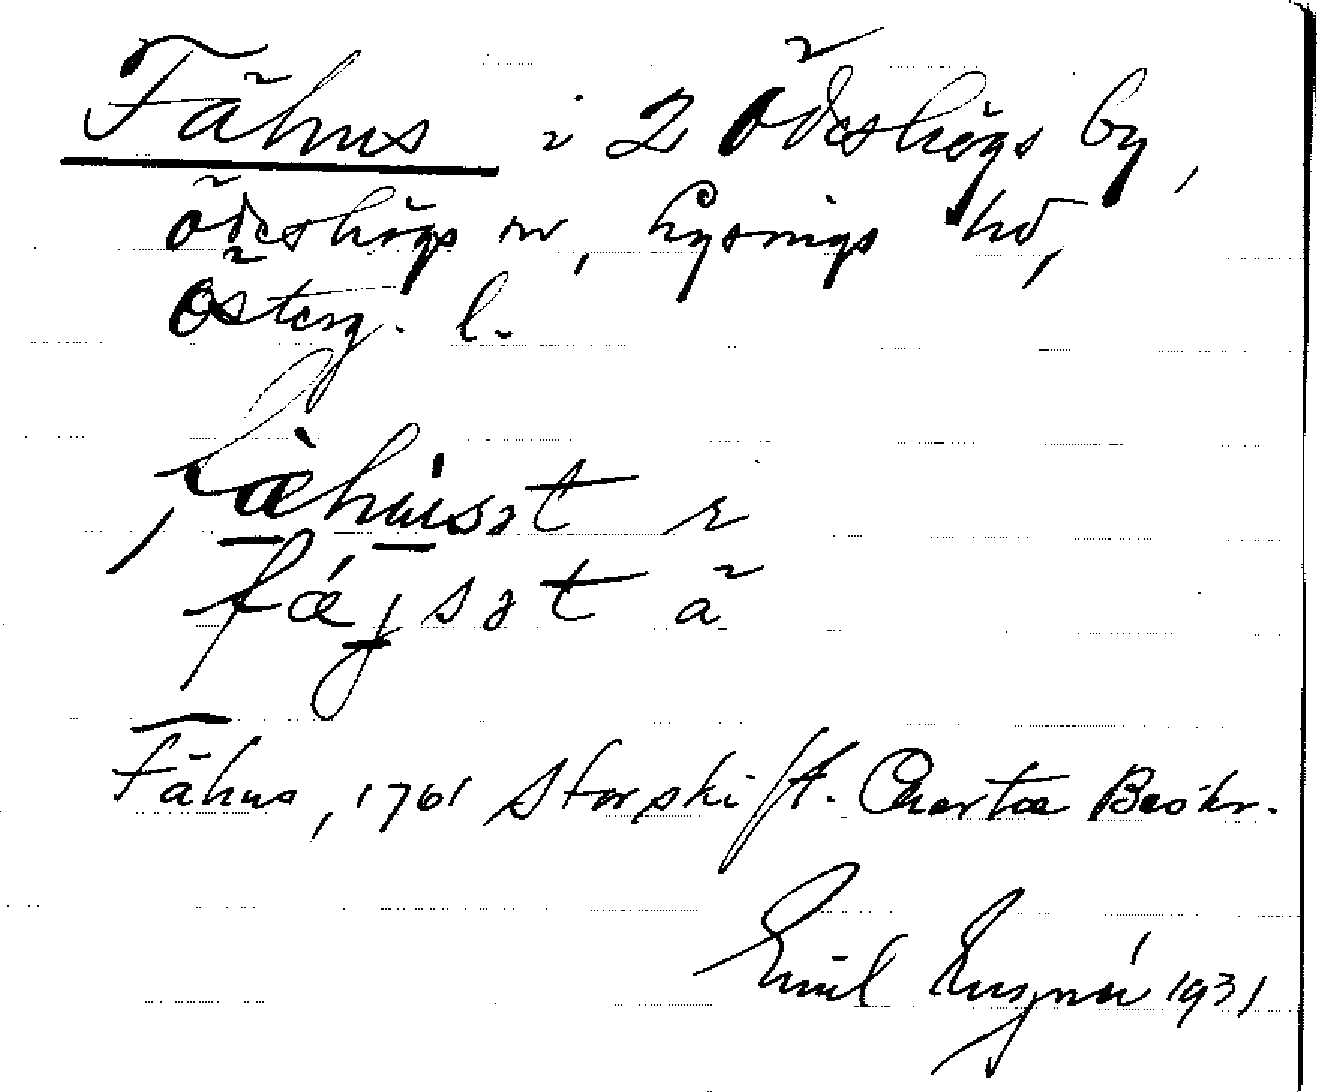 Fähus i 2 Ödeshögs by,
Ödeshögs sn, Lysings hd,
Österg. l.
fæ̀hu̇sət r
fǽjsət ä
Fähus, 1761 Storskift. Charta Beskr.
Emil Engnér 1931